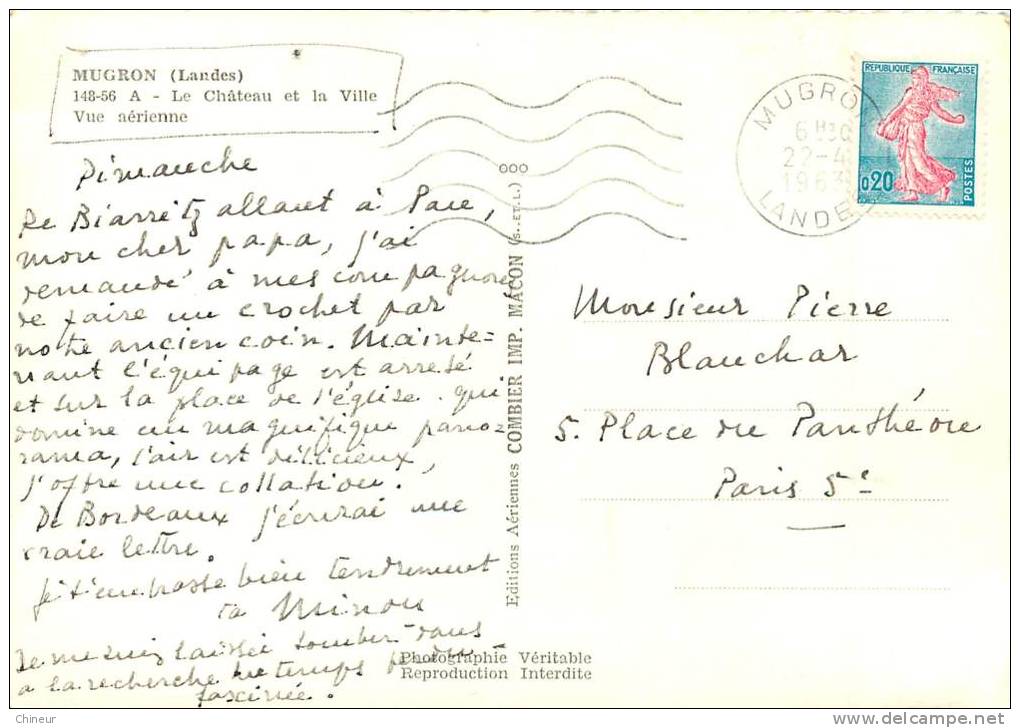 MUGRON (Landes)
148-56 A - Le Château et la Ville
Vue aérienne
MUGRON
6 H30
22-4
1963
LANDES
REPUBLIQUE FRANÇAISE
0,20
POSTES
Dimanche
De Biarritz allant à Pau,
mon cher papa, j'ai
demandé à mes compagnons
de faire un crochet par
notre ancien coin. Mainte=
nant l'équipage est arrêté
et sur la place de l'église. qui
domine un magnifique pano=
rama, l'air est délicieux,
j'offre une collation.
De Bordeaux j'écrirai une
vraie lettre.
Je t'embrasse bien tendrement
ta Minou
Je me suis laissée tomber dans
a la recherche du temps perdu
fascinée.
ooo
Editions Aériennes COMBIER IMP. MACON (S.ET.L.)
Monsieur Pierre
Blanchar
5. Place du Panthéon
Paris 5e
Photographie Véritable
Reproduction Interdite
Chineur
www.delcampe.net